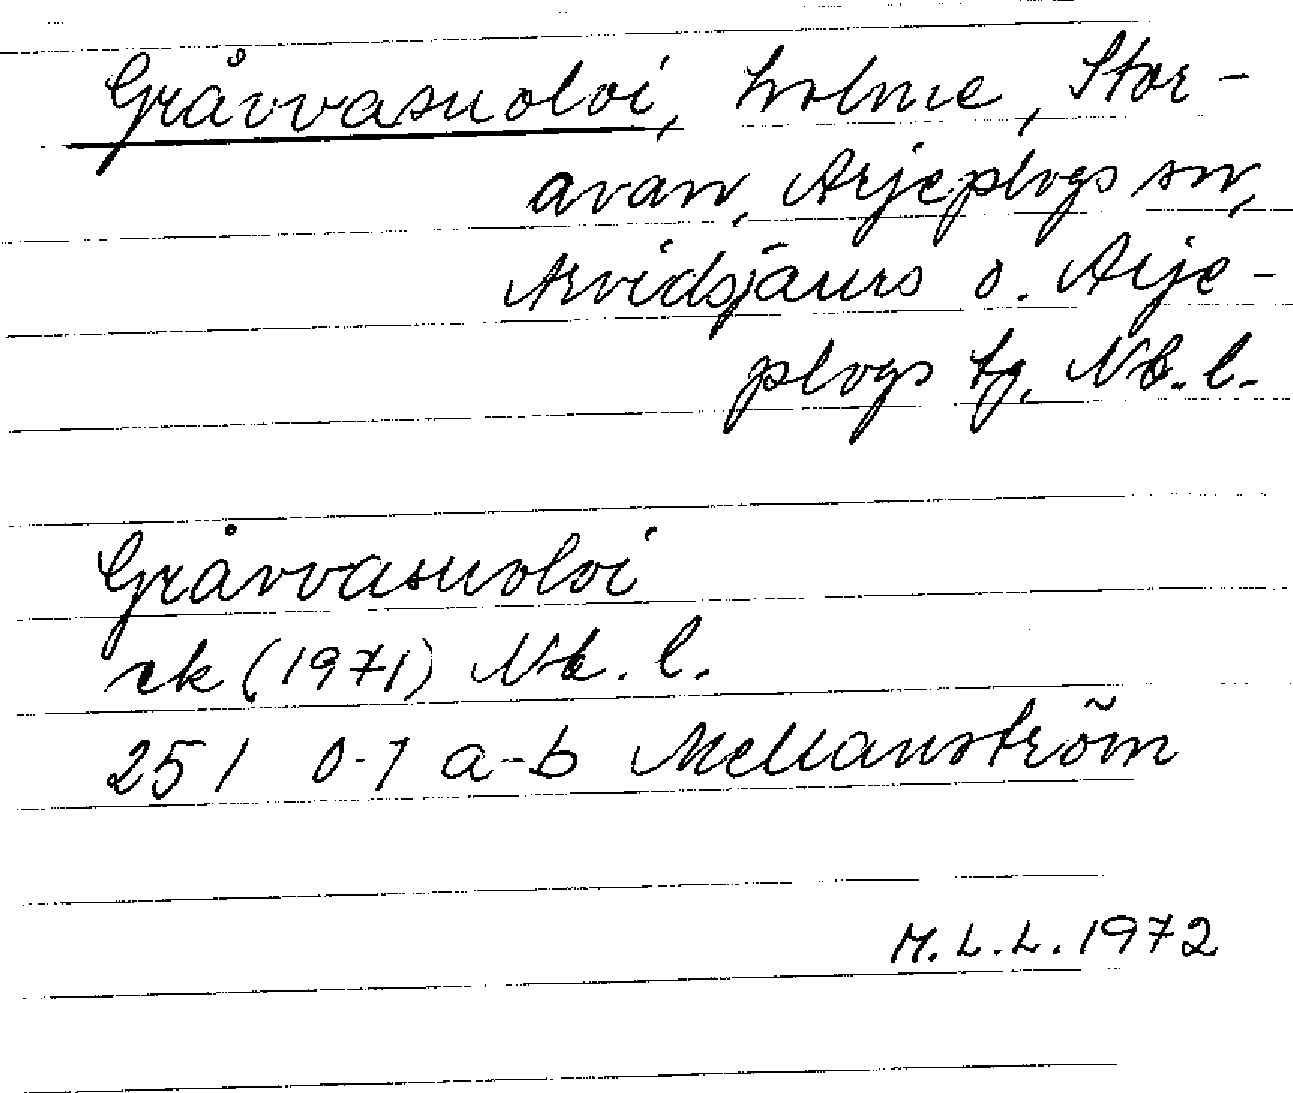 Gråvvasuoloi, holme, Stor-
avan, Arjeplogs sn,
Arvidsjaurs o. Arje-
plogs tg, Nb. l.
Gråvvasuoloi
rek (1971) Nb. l.
25 I 0-1 a-b Mellanström
M.L.L. 1972